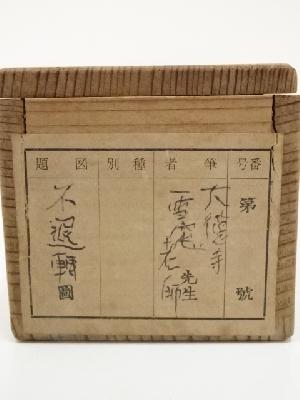 番号
第
號
筆者
大徳寺
雪庵老師
先生
種別
図題
不退轉
圖